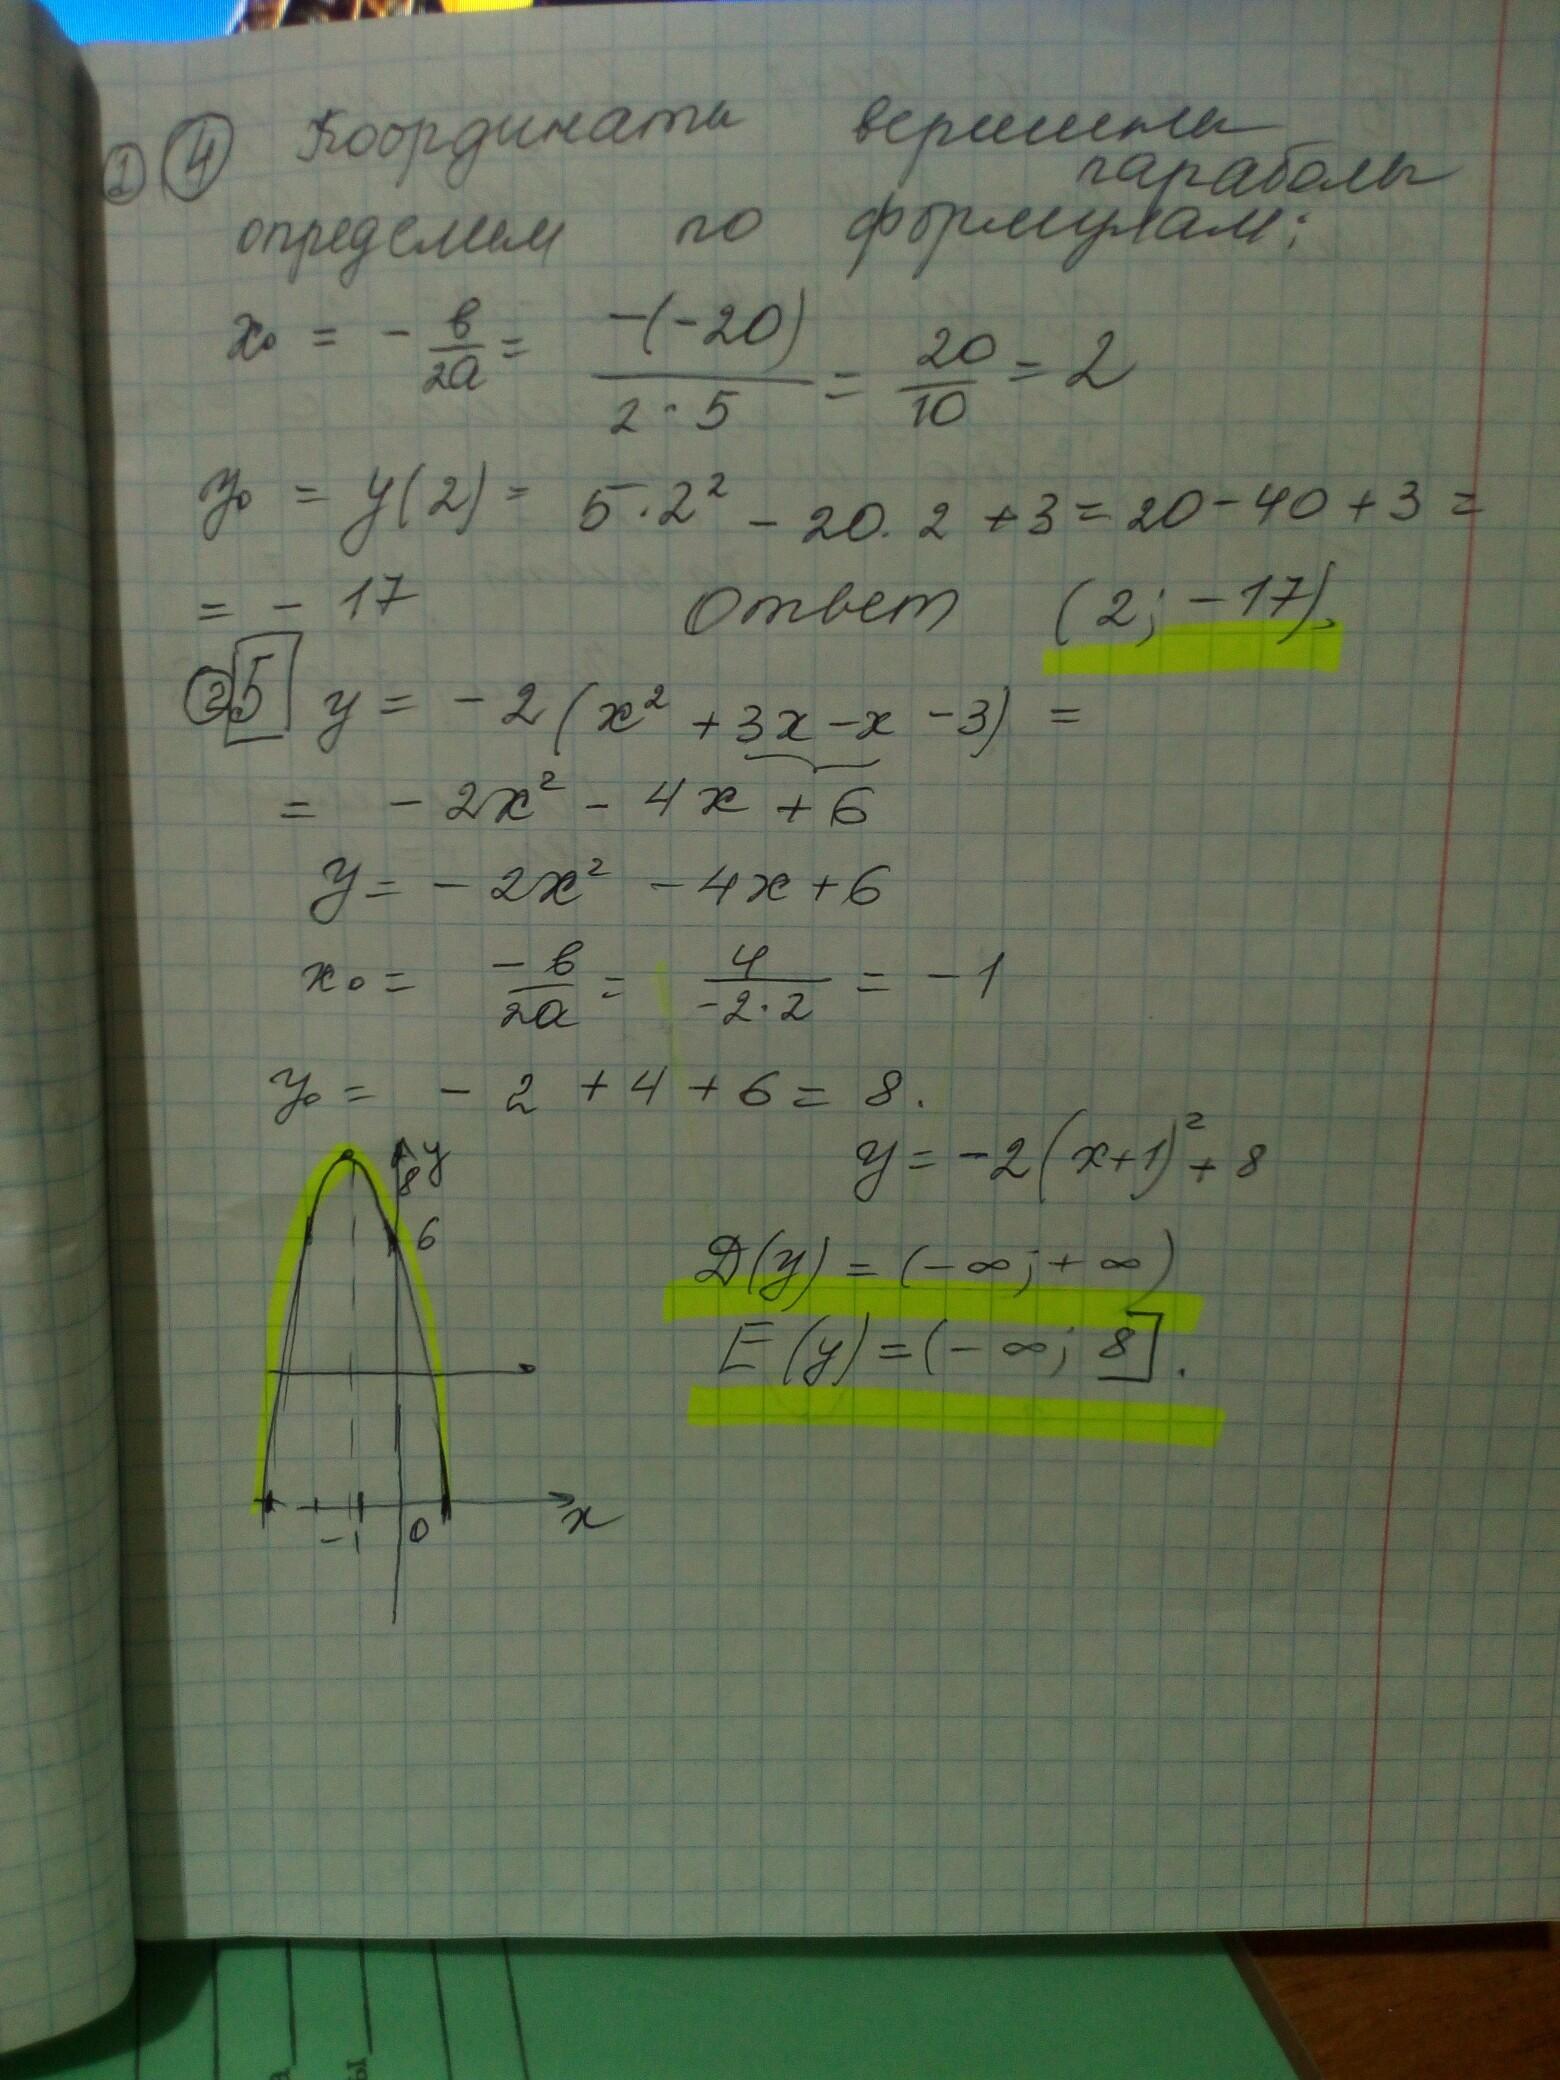 ① ④ Координаты вершины
параболы
определим по формулам:
x₀ = - в/2a = -(-20)/2·5 = 20/10 = 2
y₀ = y(2) = 5·2² - 20·2 + 3 = 20 - 40 + 3 =
= - 17 Ответ (2; -17).
② 5 y = -2(x² + 3x - x - 3) =
= - 2x² - 4x + 6
y = - 2x² - 4x + 6
x₀ = -в/2a = 4/-2·2 = - 1
y₀ = - 2 + 4 + 6 = 8.
y = -2(x+1)² + 8
y
8
6
D(y) = (-∞; +∞)
E(y) = (-∞; 8].
-1 0 x